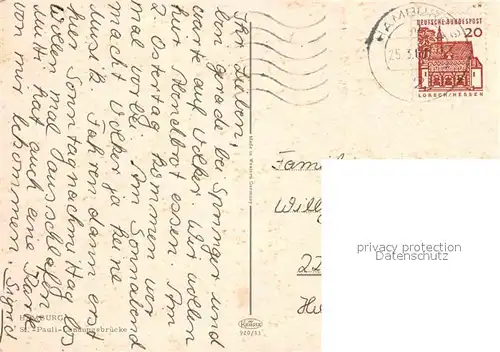 Ihr Lieben,
bin gerade bei Springer und
warte auf Volker. Wir wollen
hier Abendbrot essen. Am
2. Ostertag kommen wir
mal vorbei. Am Sonnabend
macht Volker ja keine
Musik. Fahren dann erst
hier Sonntagnachmittag los.
Wollen mal ausschlafen
Mutti hat auch eine Karte
von mir bekommen.
Sigrid
HAMBURG
St. Pauli - Landungsbrücke
Made in Western Germany
Krüger
920/33
HAMBURG
25.3.
DEUTSCHE BUNDESPOST
20
LORSCH/HESSEN
Famili
Willy
22
privacy protection
Datenschutz